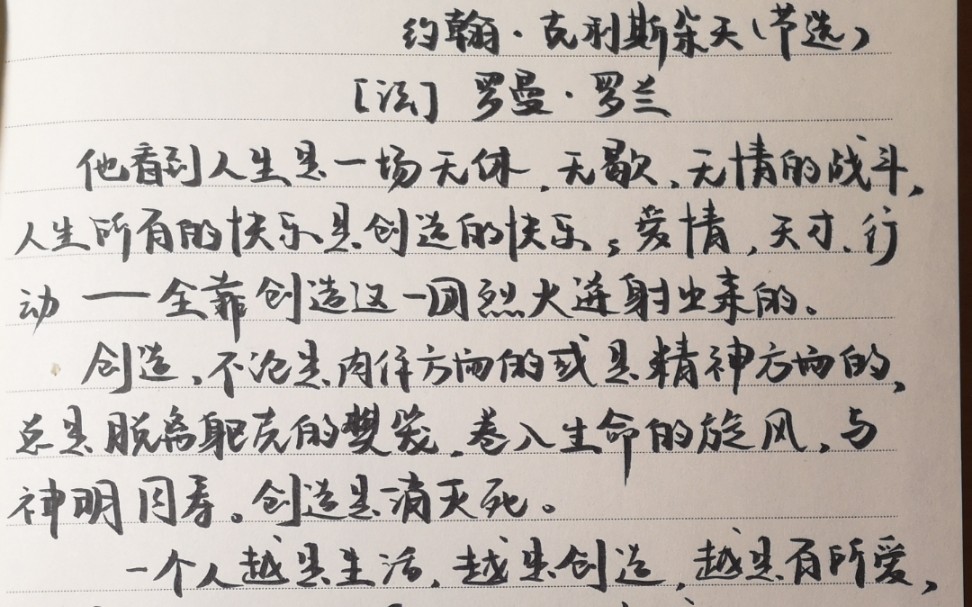 约翰·克利斯朵夫(节选)
[法] 罗曼·罗兰
他看到人生是一场无休、无歇、无情的战斗,
人生所有的快乐是创造的快乐:爱情、天才、行
动——全靠创造这一团烈火迸射出来的。
创造、不论是肉体方面的或是精神方面的,
总是脱离躯壳的樊笼,卷入生命的旋风,与
神明同寿。创造是消灭死。
一个人越是生活,越是创造,越是有所爱,